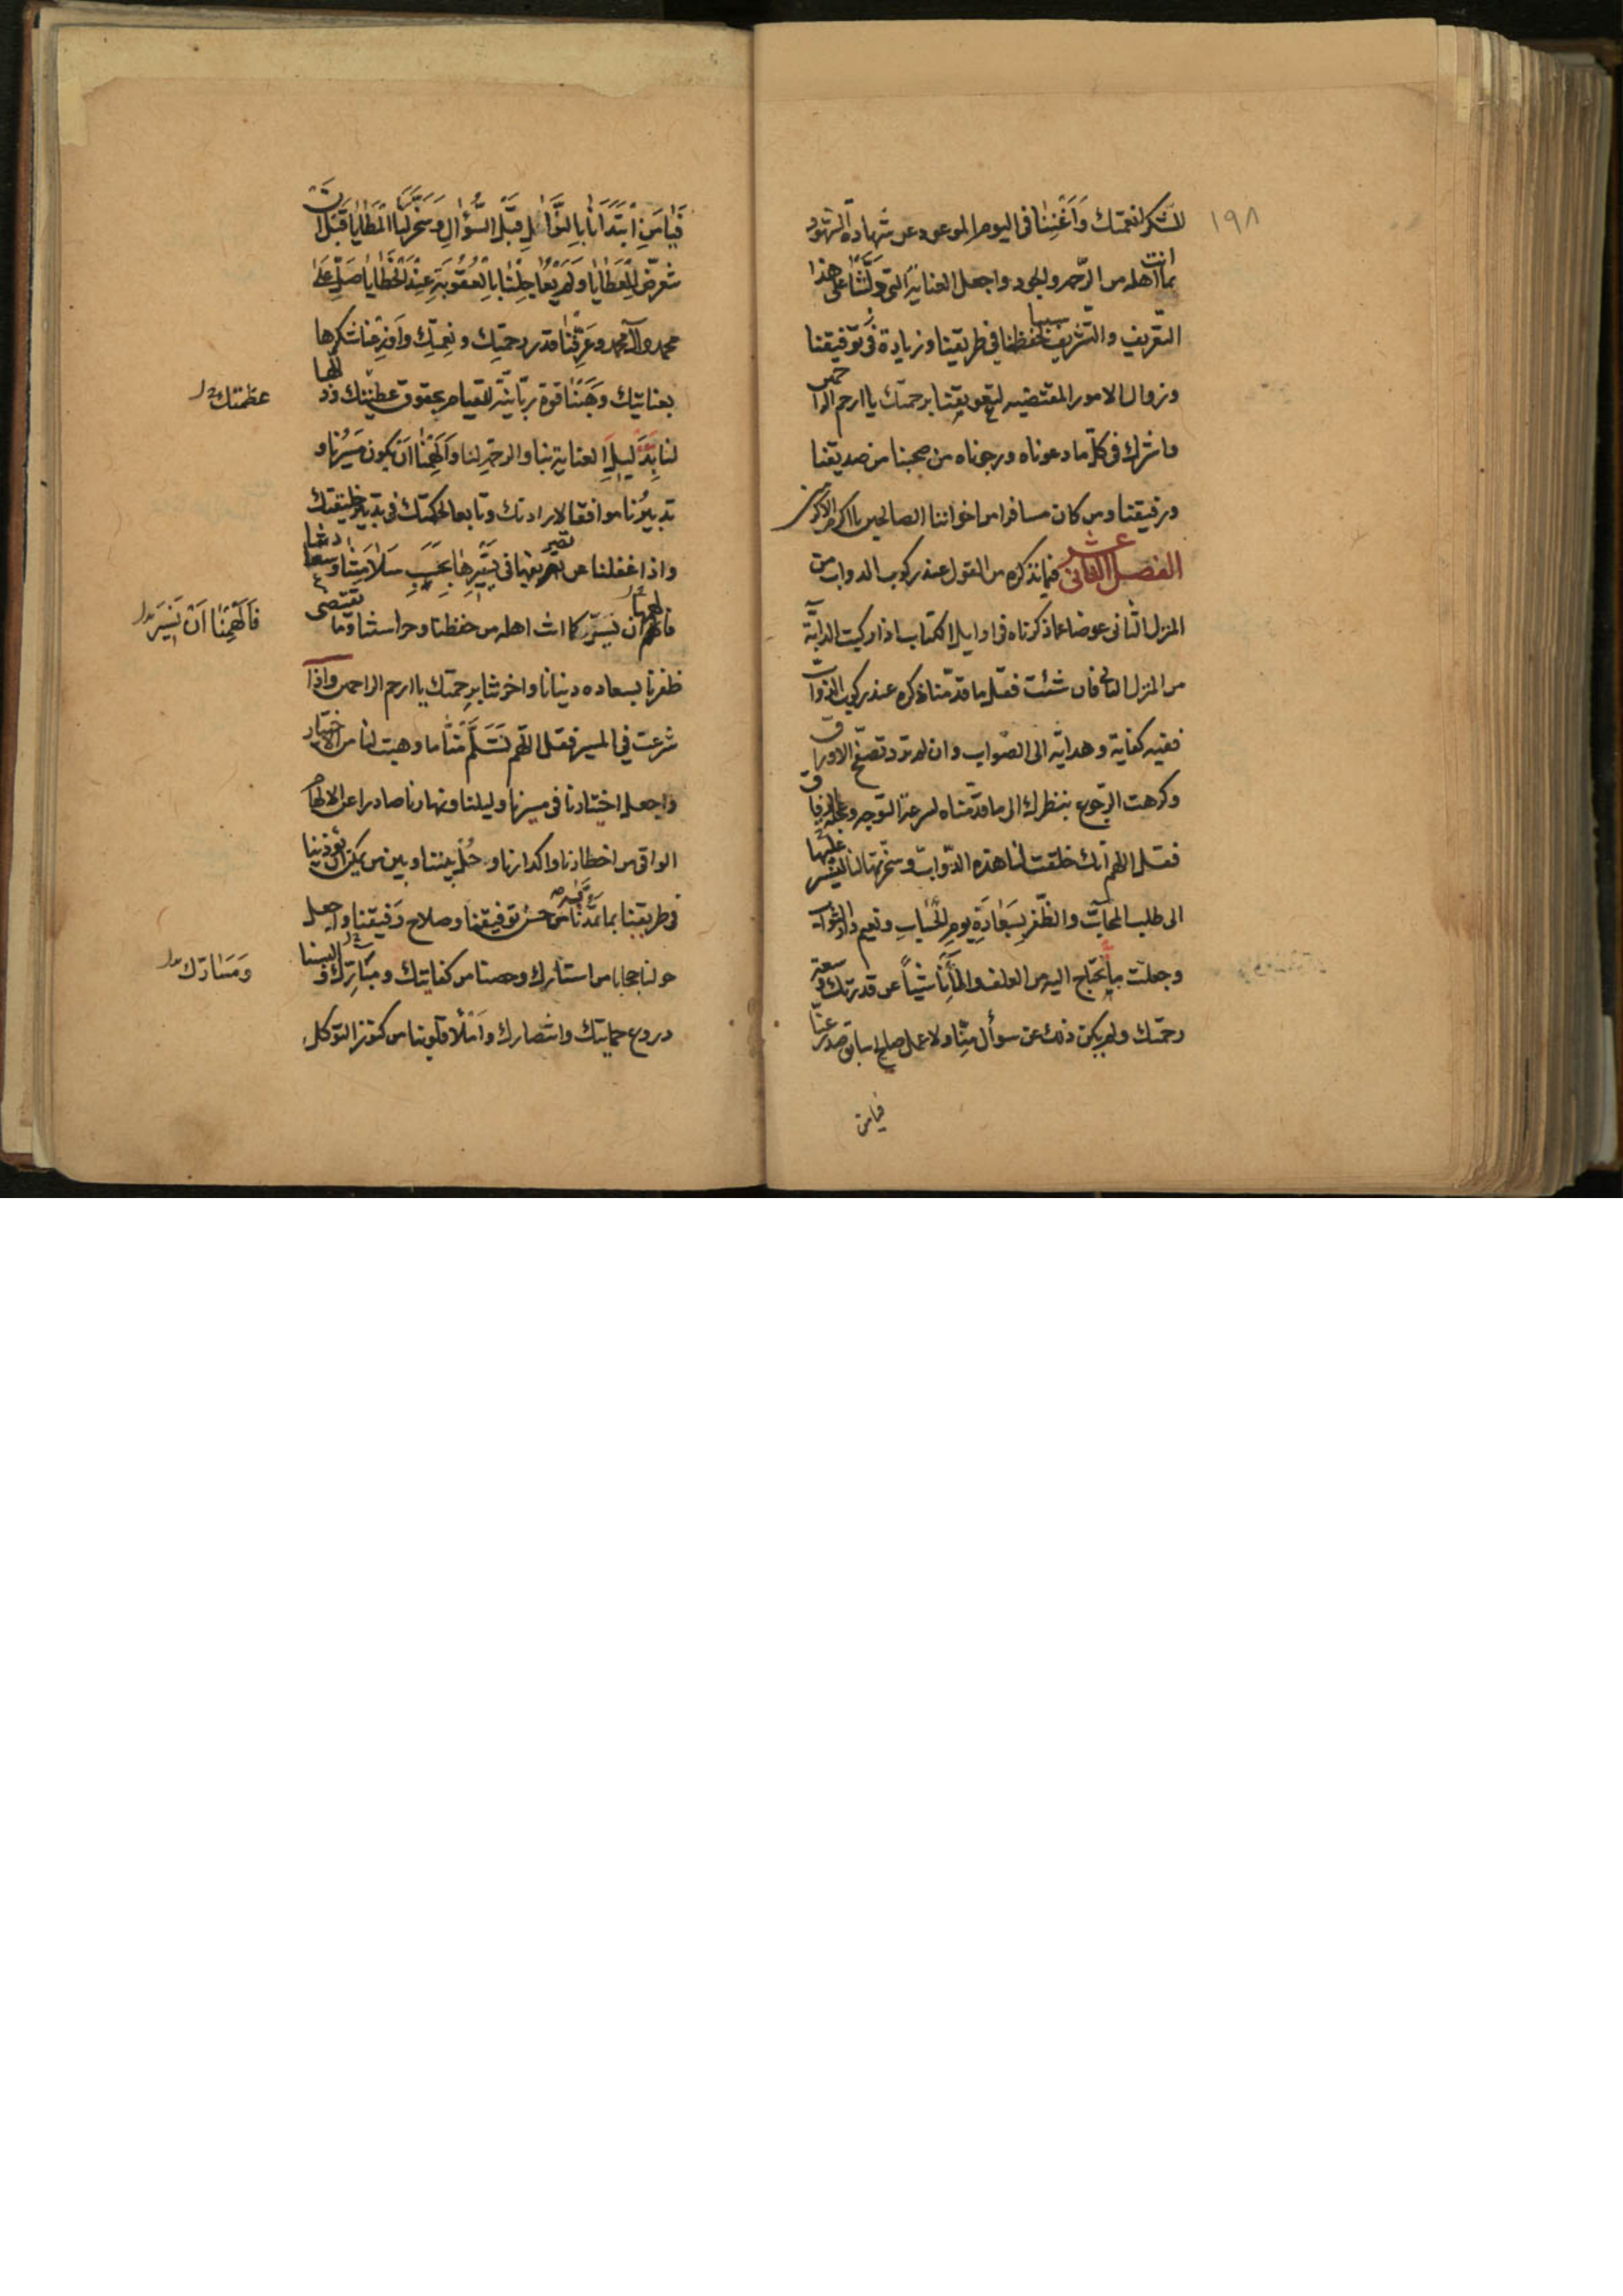 ١٩٨
لشكر نعمتك وَاَغْنِنا فى اليوم الموعود عن شهادة الشهود
بما انت اهله من الرّحمة والجود واجعل العناية التى دلّتنا على هذا
التّعريف والتّشريف سببا لحفظنا فى طريقنا وزيادة فى توفيقنا
وزوال الامور المقتضيه لتعويقنا برحمتك يا ارحم الراحمين
واشرك فى كلّ ما دعوناه ورجوناه من صحبنا من صديقنا
ورفيقنا ومن كان مسافرا من اخواننا الصالحين يا اكرم الاكرمين
الفصل الثانى عشر فيما نذكره من القول عند ركوب الدواب من
المنزل الثانى عوضا عما ذكرناه فى اوايل الكتاب اذا ركبت الدابّة
من المنزل الثانى فان شئت فقل ما قدّمناه ذكره عند ركوب الدوابّ
ففيه كفاية وهداية الى الصّواب وان لم ترد تصفّح الاوراق
وكرهت الرّجوع بنظرك الى ما قدّمناه لسرعة التوجه وعجلة الرفاق
فقل اللهم انك خلقت لنا هذه الدّوابّ وسخّرتها لنا لنسير عليها
الى طلب المحابّ والظّفر بِسَعٰادَةِ يوم الحساب ونعيم دار الثواب
وجعلت ما يحتاج اليه من العلف والماء ناشئاً عن قدرتك وسعة
رحمتك ولم يكن ذلك عن سوأل منّا ولا عمل صالح سابق صدر عنّا
فيا من
فَيٰا مَنِ ابْتَدَاَنٰا بِالنَّوٰالِ قَبْلَ السُّؤٰالِ وَسَخَّرَ لَنَا الْمَطٰايٰا قَبْلَ اَنْ
نتعرّض لِلْعَطٰايٰا وَلَمْ يُعٰاجِلْنٰا بِالْعُقُوبَةِ عِنْدَ الْخَطٰايٰا صَلِّ عَلىٰ
محمد وآل محمد وعَرِّفْنٰا قدر رحمتِك ونِعمتِك وَاَوْزِعْنا شكرها
بعنايتك وَهَبْ لَنٰا قوة ربّانيّة للقيام بحقوق عطيّتك وذلّلها
عظمتك
لنا بِتَذْليلِ العناية بنا والرحمة لنا وَاَلْهِمْنٰا اَنْ يكون مَسيرُنا و
تدبيرُنا موافقا لارادتك وتابعا لحكمتك فى تدبير خليقتك
واذا غفلنا عن تدبيرنا فى تسييرها بحَسَبِ سَلٰامَتِنٰا وسعادتنا
فالهمها ان تسير كما انت اهله من حفظنا وحراستنا وما تقتضى
فَاَلْهِمْنٰا اَنْ نَسيرَ
ظفرنا بسعادة دنيانا واخرتنا برحمتك يا ارحم الراحمين واذا
شرعت فى المسير فقل اللهم تَسَلَّمْ منّا ما وهبت لنا من الاختيار
واجعل اختيارنا فى مسيرنا وليلنا ونهارنا صادرا عن الالهام
الواقى من اخطارنا واكدارنا وحُل بيننا وبين من يمكن ان يؤذينا
فى طريقنا بما تمدّنا به من حسن توفيقنا وصلاح رَفيقنا واجعل
حولنا حجابا من استارك وحصنا من كفايتك ومبارّك والبسنا
وَمَسَارّك
دروع حمايتك وانتصارك وامْلَأْ قلوبنا من كنوز التوكل